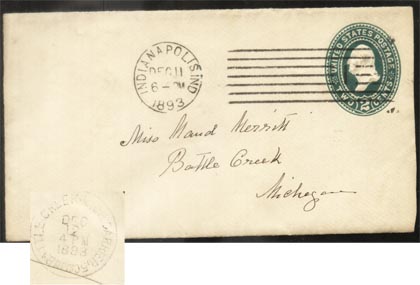 INDIANAPOLIS IND
DEC 11
6 - PM
1893
UNITED STATES POSTAGE
TWO CENTS
2
Miss Maud Merritt
Battle Creek
Michigan
TLE CREEK
DEC
12
4 PM
1893